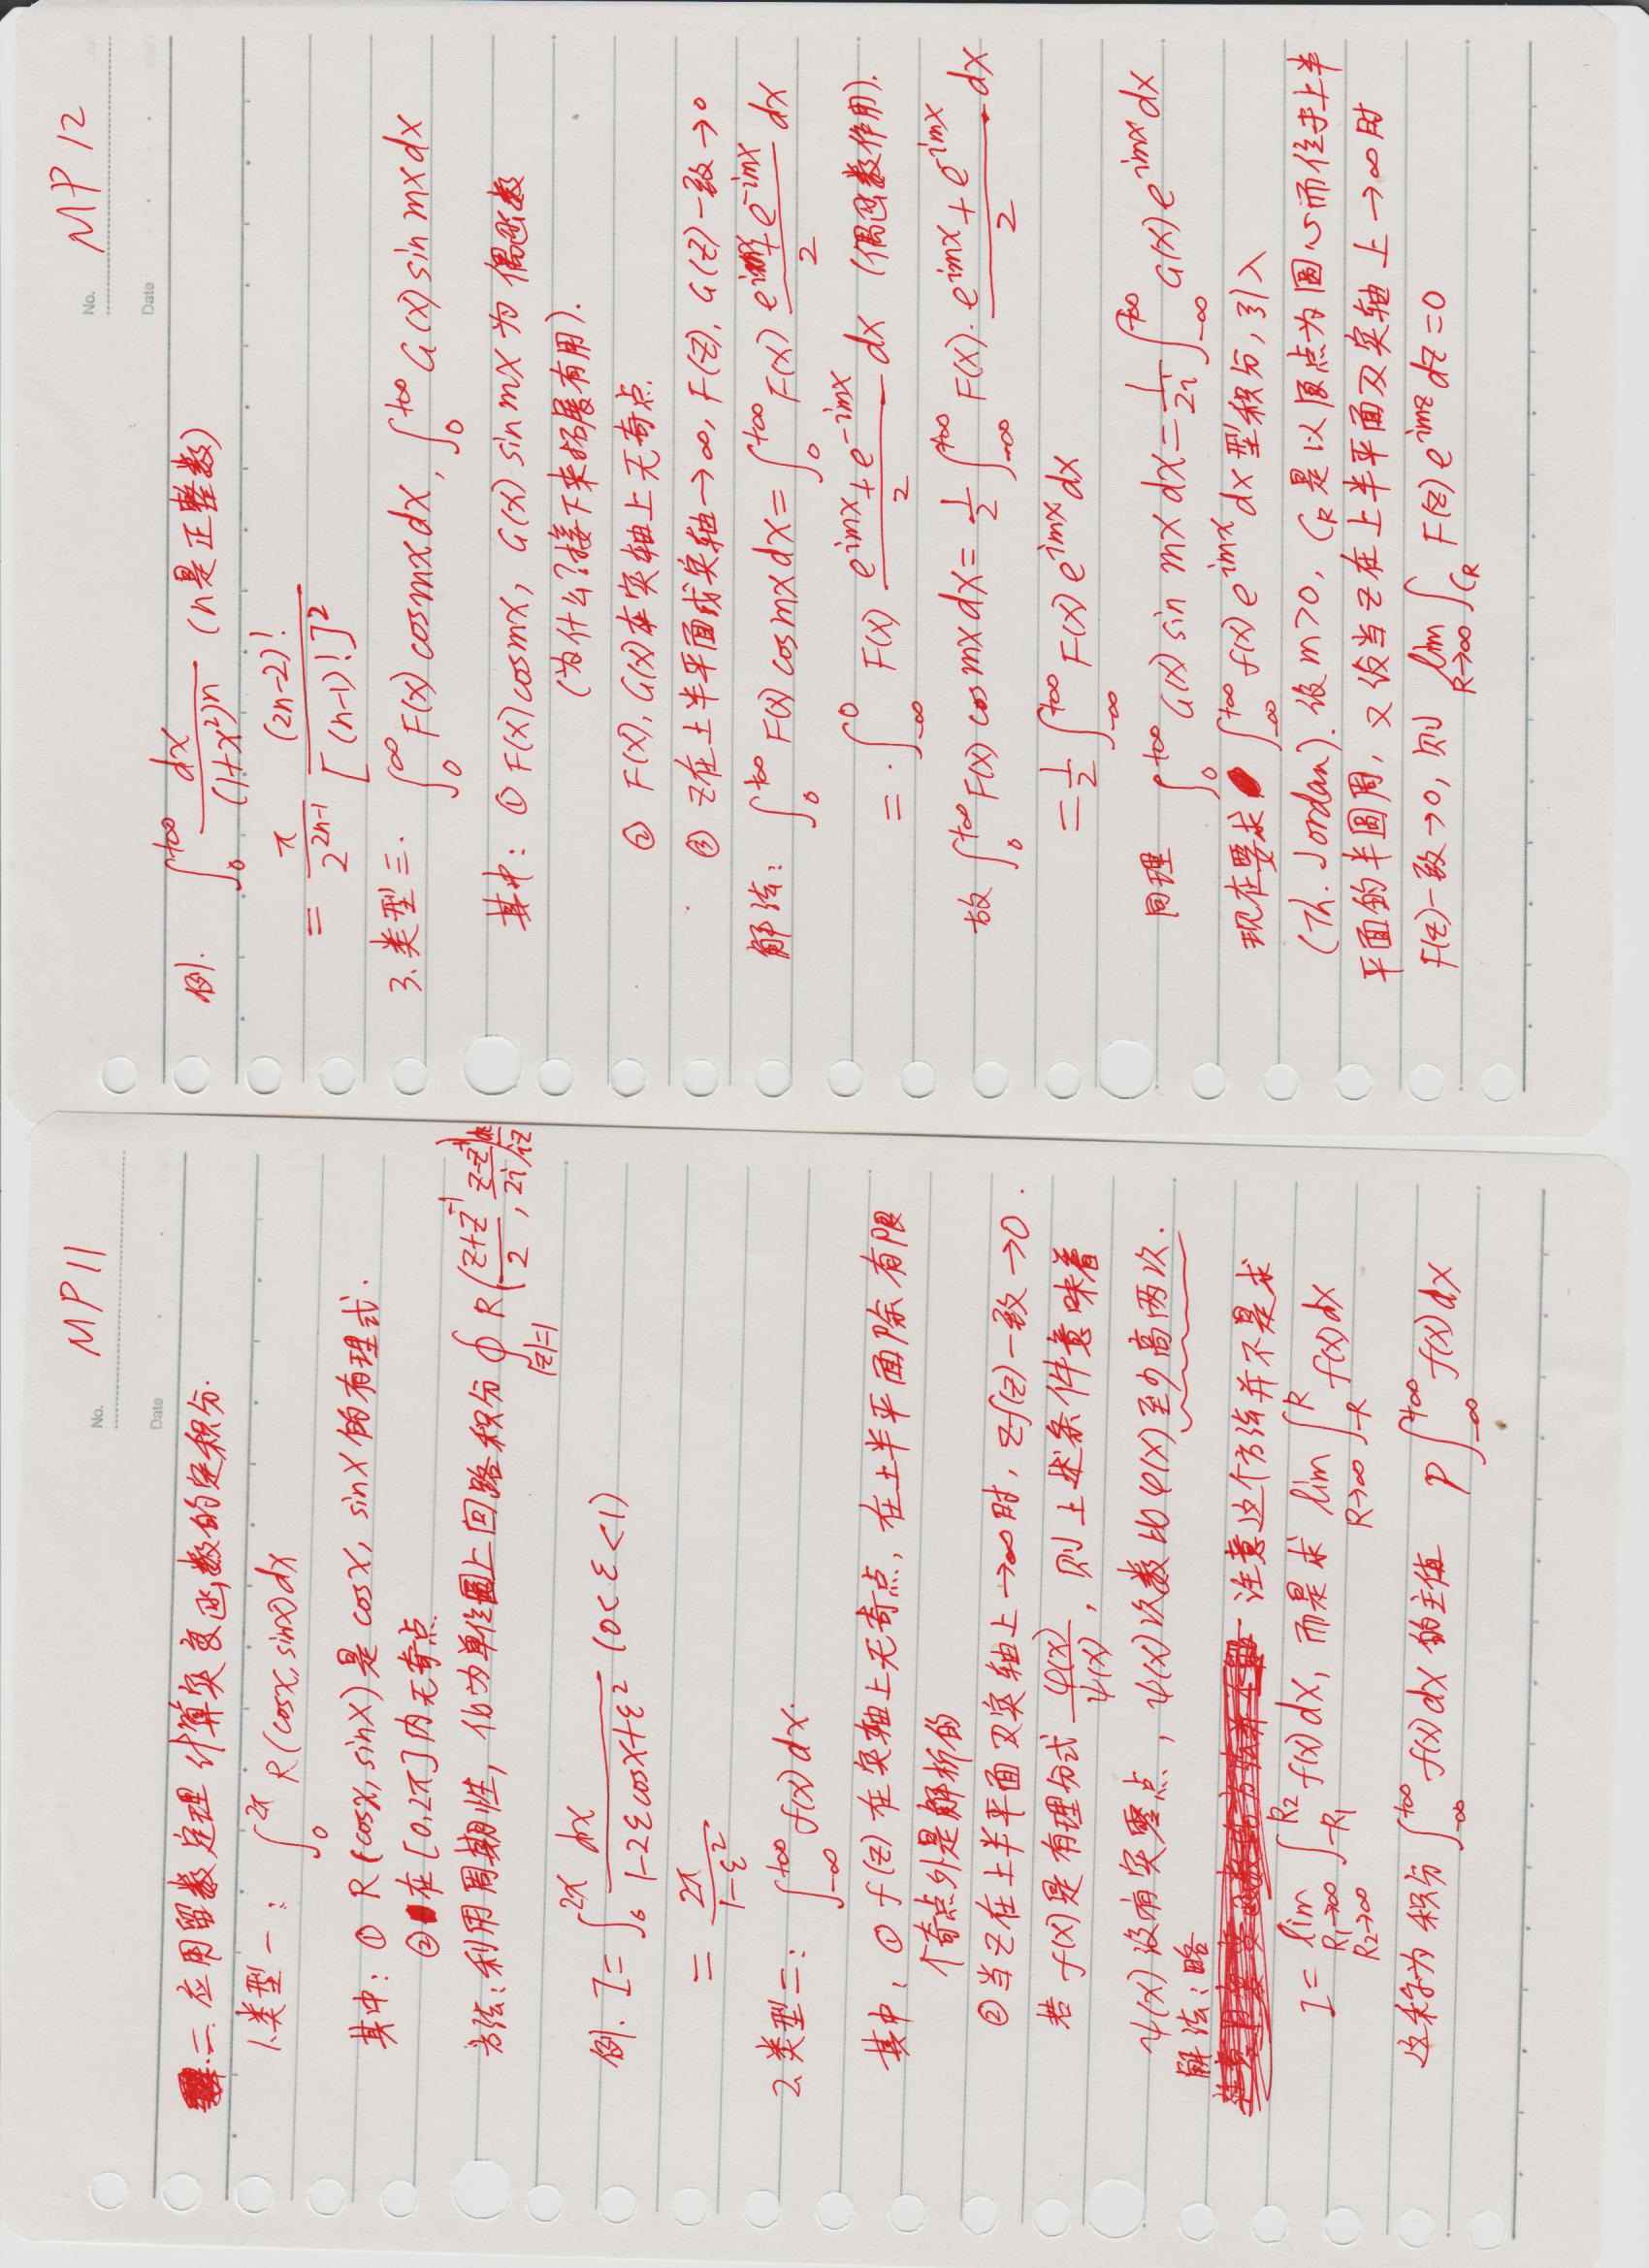 No. MP11
Date
二. 应用留数定理计算实变函数的定积分.
1.类型一: ∫_0^{2π} R(cosx, sinx)dx
其中: ① R(cosx, sinx)是 cosx, sinx 的有理式.
② 在[0,2π]内无奇点
方法: 利用周期性, 化为单位圆上回路积分 ∮_{|z|=1} R((z+z^{-1})/2, (z-z^{-1})/2i) dz/iz
例. I = ∫_0^{2π} dx/(1-2εcosx+ε²) (0<ε<1)
= 2π/(1-ε²)
2.类型二: ∫_{-∞}^{+∞} f(x)dx.
其中: ① f(z)在实轴上无奇点, 在上半平面除有限
个奇点外是解析的
② 当z在上半平面及实轴上→∞时, zf(z)一致→0.
若 f(x)是有理分式 φ(x)/ψ(x), 则上述条件意味着
ψ(x)没有实零点, ψ(x)次数比φ(x)至少高两次.
解法: 略
注意这个方法并不是求
I = lim_{R₁→∞ R₂→∞} ∫_{-R₁}^{R₂} f(x)dx, 而是求 lim_{R→∞} ∫_{-R}^{R} f(x)dx
这称为积分 ∫_{-∞}^{+∞} f(x)dx 的主值 P∫_{-∞}^{+∞} f(x)dx
No. MP 12
Date
例. ∫_0^{+∞} dx/(1+x²)^n (n是正整数)
= π/2^{2n-1} (2n-2)!/[(n-1)!]²
3.类型三. ∫_0^{∞} F(x) cosmx dx, ∫_0^{+∞} G(x) sin mx dx
其中: ① F(x)cosmx, G(x) sinmx 为 偶函数
(为什么?接下来拓展有用).
② F(x), G(x)在实轴上无奇点.
③ z在上半平面或实轴→∞, F(z), G(z)一致→0
解法: ∫_0^{+∞} F(x) cosmx dx = ∫_0^{+∞} F(x) (e^{imx}+e^{-imx})/2 dx
= ∫_{-∞}^{0} F(x) (e^{imx}+e^{-imx})/2 dx (偶函数作用).
故 ∫_0^{+∞} F(x) cosmx dx = 1/2 ∫_{-∞}^{+∞} F(x)·(e^{imx}+e^{-imx})/2 dx
= 1/2 ∫_{-∞}^{+∞} F(x) e^{imx} dx
同理 ∫_0^{+∞} G(x) sin mx dx = 1/2i ∫_{-∞}^{+∞} G(x) e^{imx} dx
现在要求 ∫_{-∞}^{+∞} f(x) e^{imx} dx 型积分, 引入
(Th. Jordan). 设m>0, C_R是以原点为圆心而位于上半
平面的半圆周, 又设当z在上半平面及实轴上→∞时
F(z)一致→0, 则 lim_{R→∞} ∫_{C_R} F(z) e^{imz} dz = 0